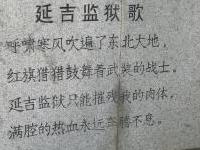 延吉监狱歌
呼啸寒风吹遍了东北大地，
红旗猎猎鼓舞着武装的战士。
延吉监狱只能摧残我的肉体，
满腔的热血永远奔腾不息。